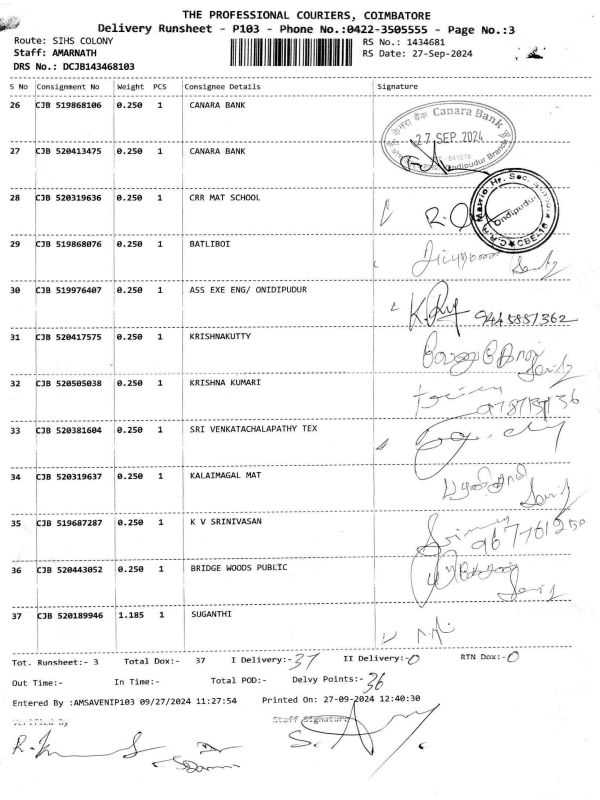 THE PROFESSIONAL COURIERS, COIMBATORE
Delivery Runsheet - P103 - Phone No.:0422-3505555 - Page No.:3
Route: SIHS COLONY RS No.: 1434681
Staff: AMARNATH RS Date: 27-Sep-2024
DRS No.: DCJB143468103
S No Consignment No Weight PCS Consignee Details Signature
26 CJB 519868106 0.250 1 CANARA BANK
Canara Bank
27 SEP 2024
27 CJB 520413475 0.250 1 CANARA BANK
Ondipudur Branch
28 CJB 520319636 0.250 1 CRR MAT SCHOOL
Ondipudur
29 CJB 519868076 0.250 1 BATLIBOI
30 CJB 519976407 0.250 1 ASS EXE ENG/ ONIDIPUDUR
9445851362
31 CJB 520417575 0.250 1 KRISHNAKUTTY
32 CJB 520505038 0.250 1 KRISHNA KUMARI
33 CJB 520381604 0.250 1 SRI VENKATACHALAPATHY TEX
34 CJB 520319637 0.250 1 KALAIMAGAL MAT
35 CJB 519687287 0.250 1 K V SRINIVASAN
9677761250
36 CJB 520443052 0.250 1 BRIDGE WOODS PUBLIC
37 CJB 520189946 1.185 1 SUGANTHI
Tot. Runsheet:- 3 Total Dox:- 37 I Delivery:- 37 II Delivery:- 0 RTN Dox:- 0
Out Time:- In Time:- Total POD:- Delvy Points:- 36
Entered By :AMSAVENIP103 09/27/2024 11:27:54 Printed On: 27-09-2024 12:40:30
Verified By Staff Signature